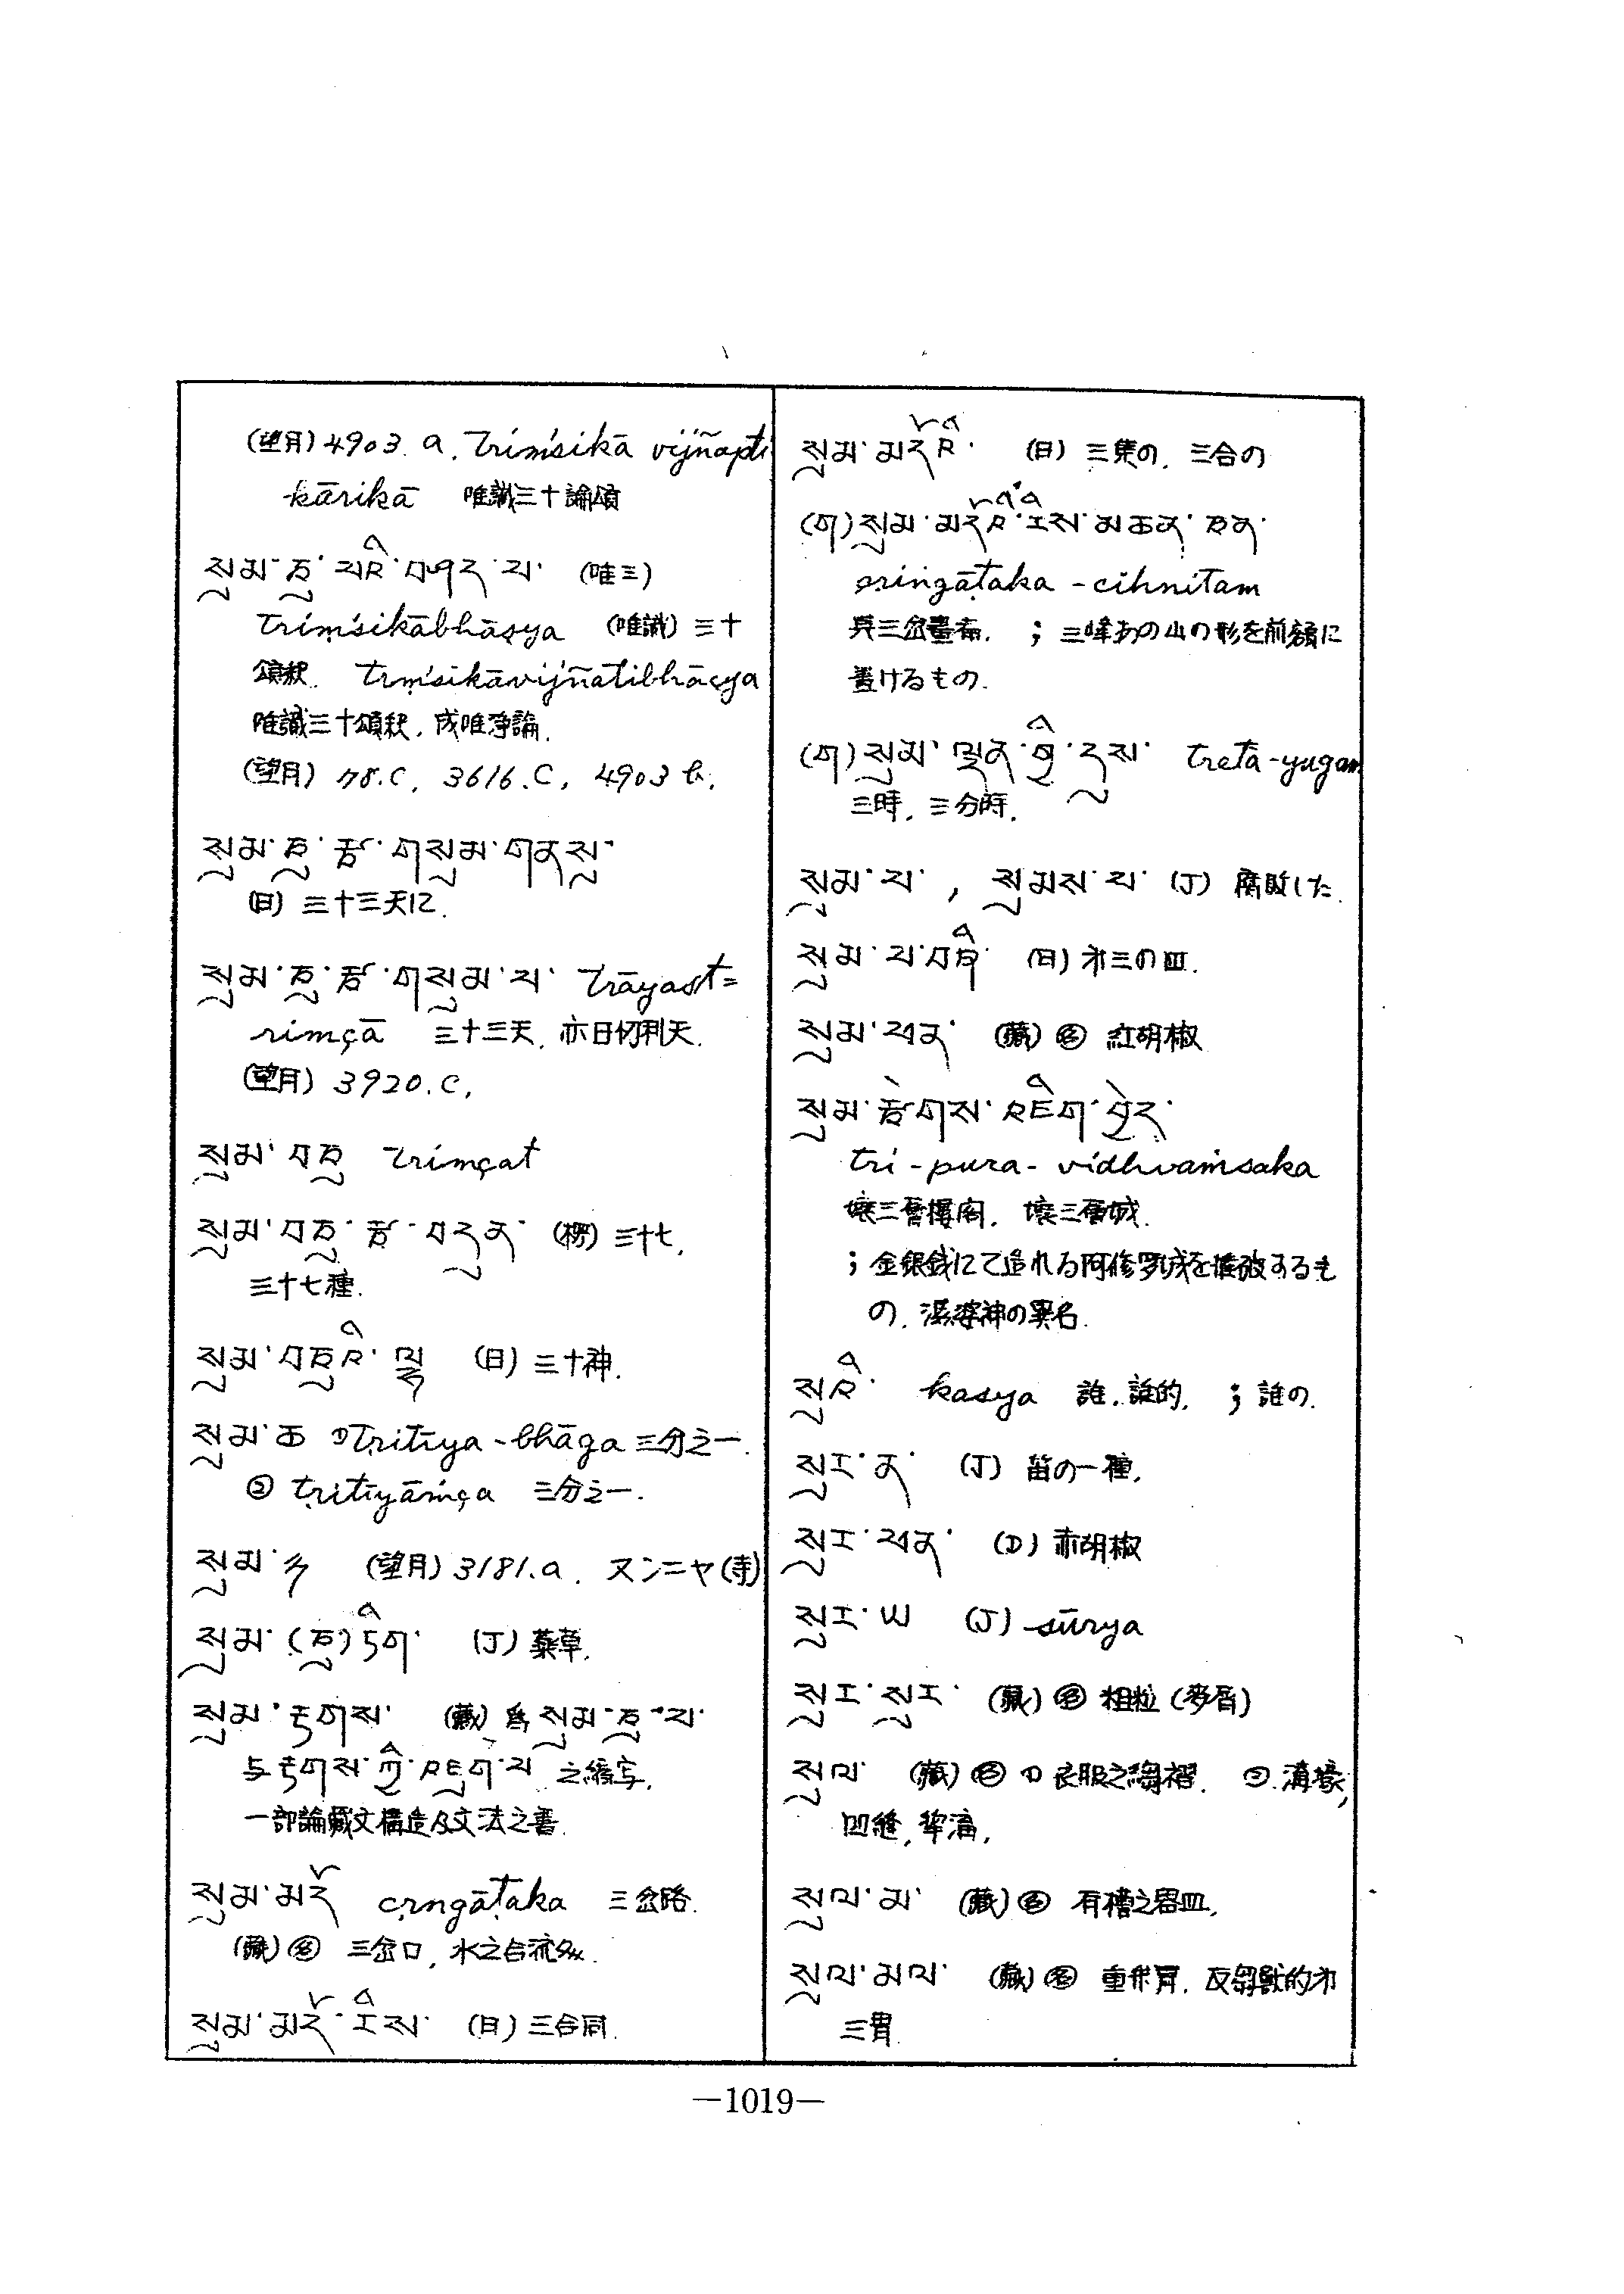 (望月) 4903. a. Trimśikā vijñapti
-kārikā 唯識三十論頌
སུམ་ཅུ་པའི་བཤད་པ་ (唯三)
Trimśikābhāṣya (唯識) 三十
頌釈. trimśikāvijñatibhāṣya
唯識三十頌釈. 成唯浄論.
(望月) 78.c, 3616.c, 4903 b.
སུམ་ཅུ་རྩ་གསུམ་གནསུ་
(日) 三十三天に.
སུམ་ཅུ་རྩ་གསུམ་པ་ Trāyast=
rimçā 三十三天. 亦曰忉利天.
(望月) 3920.c,
སུམ་བཅུ Trimçat
སུམ་བཅུ་རྩ་བདུན་ (楞) 三十七,
三十七種.
སུམ་བཅུའི་ལྷ (日) 三十神.
སུམ་ཆ ①Tṛitīya-bhāga 三分之一.
② tṛitīyāṁça 三分之一.
སུམ་ཉ (望月) 3181.a. スンニヤ (寺)
སུམ་(ཅུ)ཏིག་ (J) 薬草.
སུམ་རྟགས་ (蔵) 為 སུམ་ཅུ་པ་
与 རྟགས་ཀྱི་འཇུག་པ 之縮写.
一部論蔵文構造及文法之書.
སུམ་མདོ cṛngāṭaka 三岔路.
(蔵) 名 三岔口, 水之合流処.
སུམ་མདོ་ངིས་ (日) 三合同.
སུམ་མདོའི་ (日) 三集の. 三合の
(ག) སུམ་མདོའི་ངོས་མཚན་ཅན་
sriṅgāṭaka-cihnitam
具三岔畫布. ; 三峰あの山の形を前額に
置けるもの.
(ག) སུམ་ལྡན་གྱི་དུས་ tretā-yugam
三時, 三分時.
སུམ་པ་, སུམས་པ་ (J) 腐敗した.
སུམ་པ་བཞི་ (日) 才三の皿.
སུམ་པན་ (蔵) 名 紅胡椒
སུམ་རྩེགས་འཇིག་བྱེད་
tri-pura-vidhvaṁsaka
壊三層樓閣. 壊三層城.
; 金銀鉄にて造れる阿修羅城を摧破するも
の. 湿婆神の異名.
སུའི་ kasya 誰. 誰的. ; 誰の.
སུར་ན་ (J) 笛の一種.
སུར་པན་ (D) 赤胡椒
སུར་ཡ (J) sūrya
སུར་སུར་ (蔵) 名 粗粒 (麥屑)
སུལ་ (蔵) 名 ① 衣服之縐褶. ② 溝壕,
凹縫, 犂溝.
སུལ་མ་ (蔵) 名 有槽之器皿.
སུལ་མལ་ (蔵) 名 重弁胃. 反芻獣的才
三胃.
—1019—